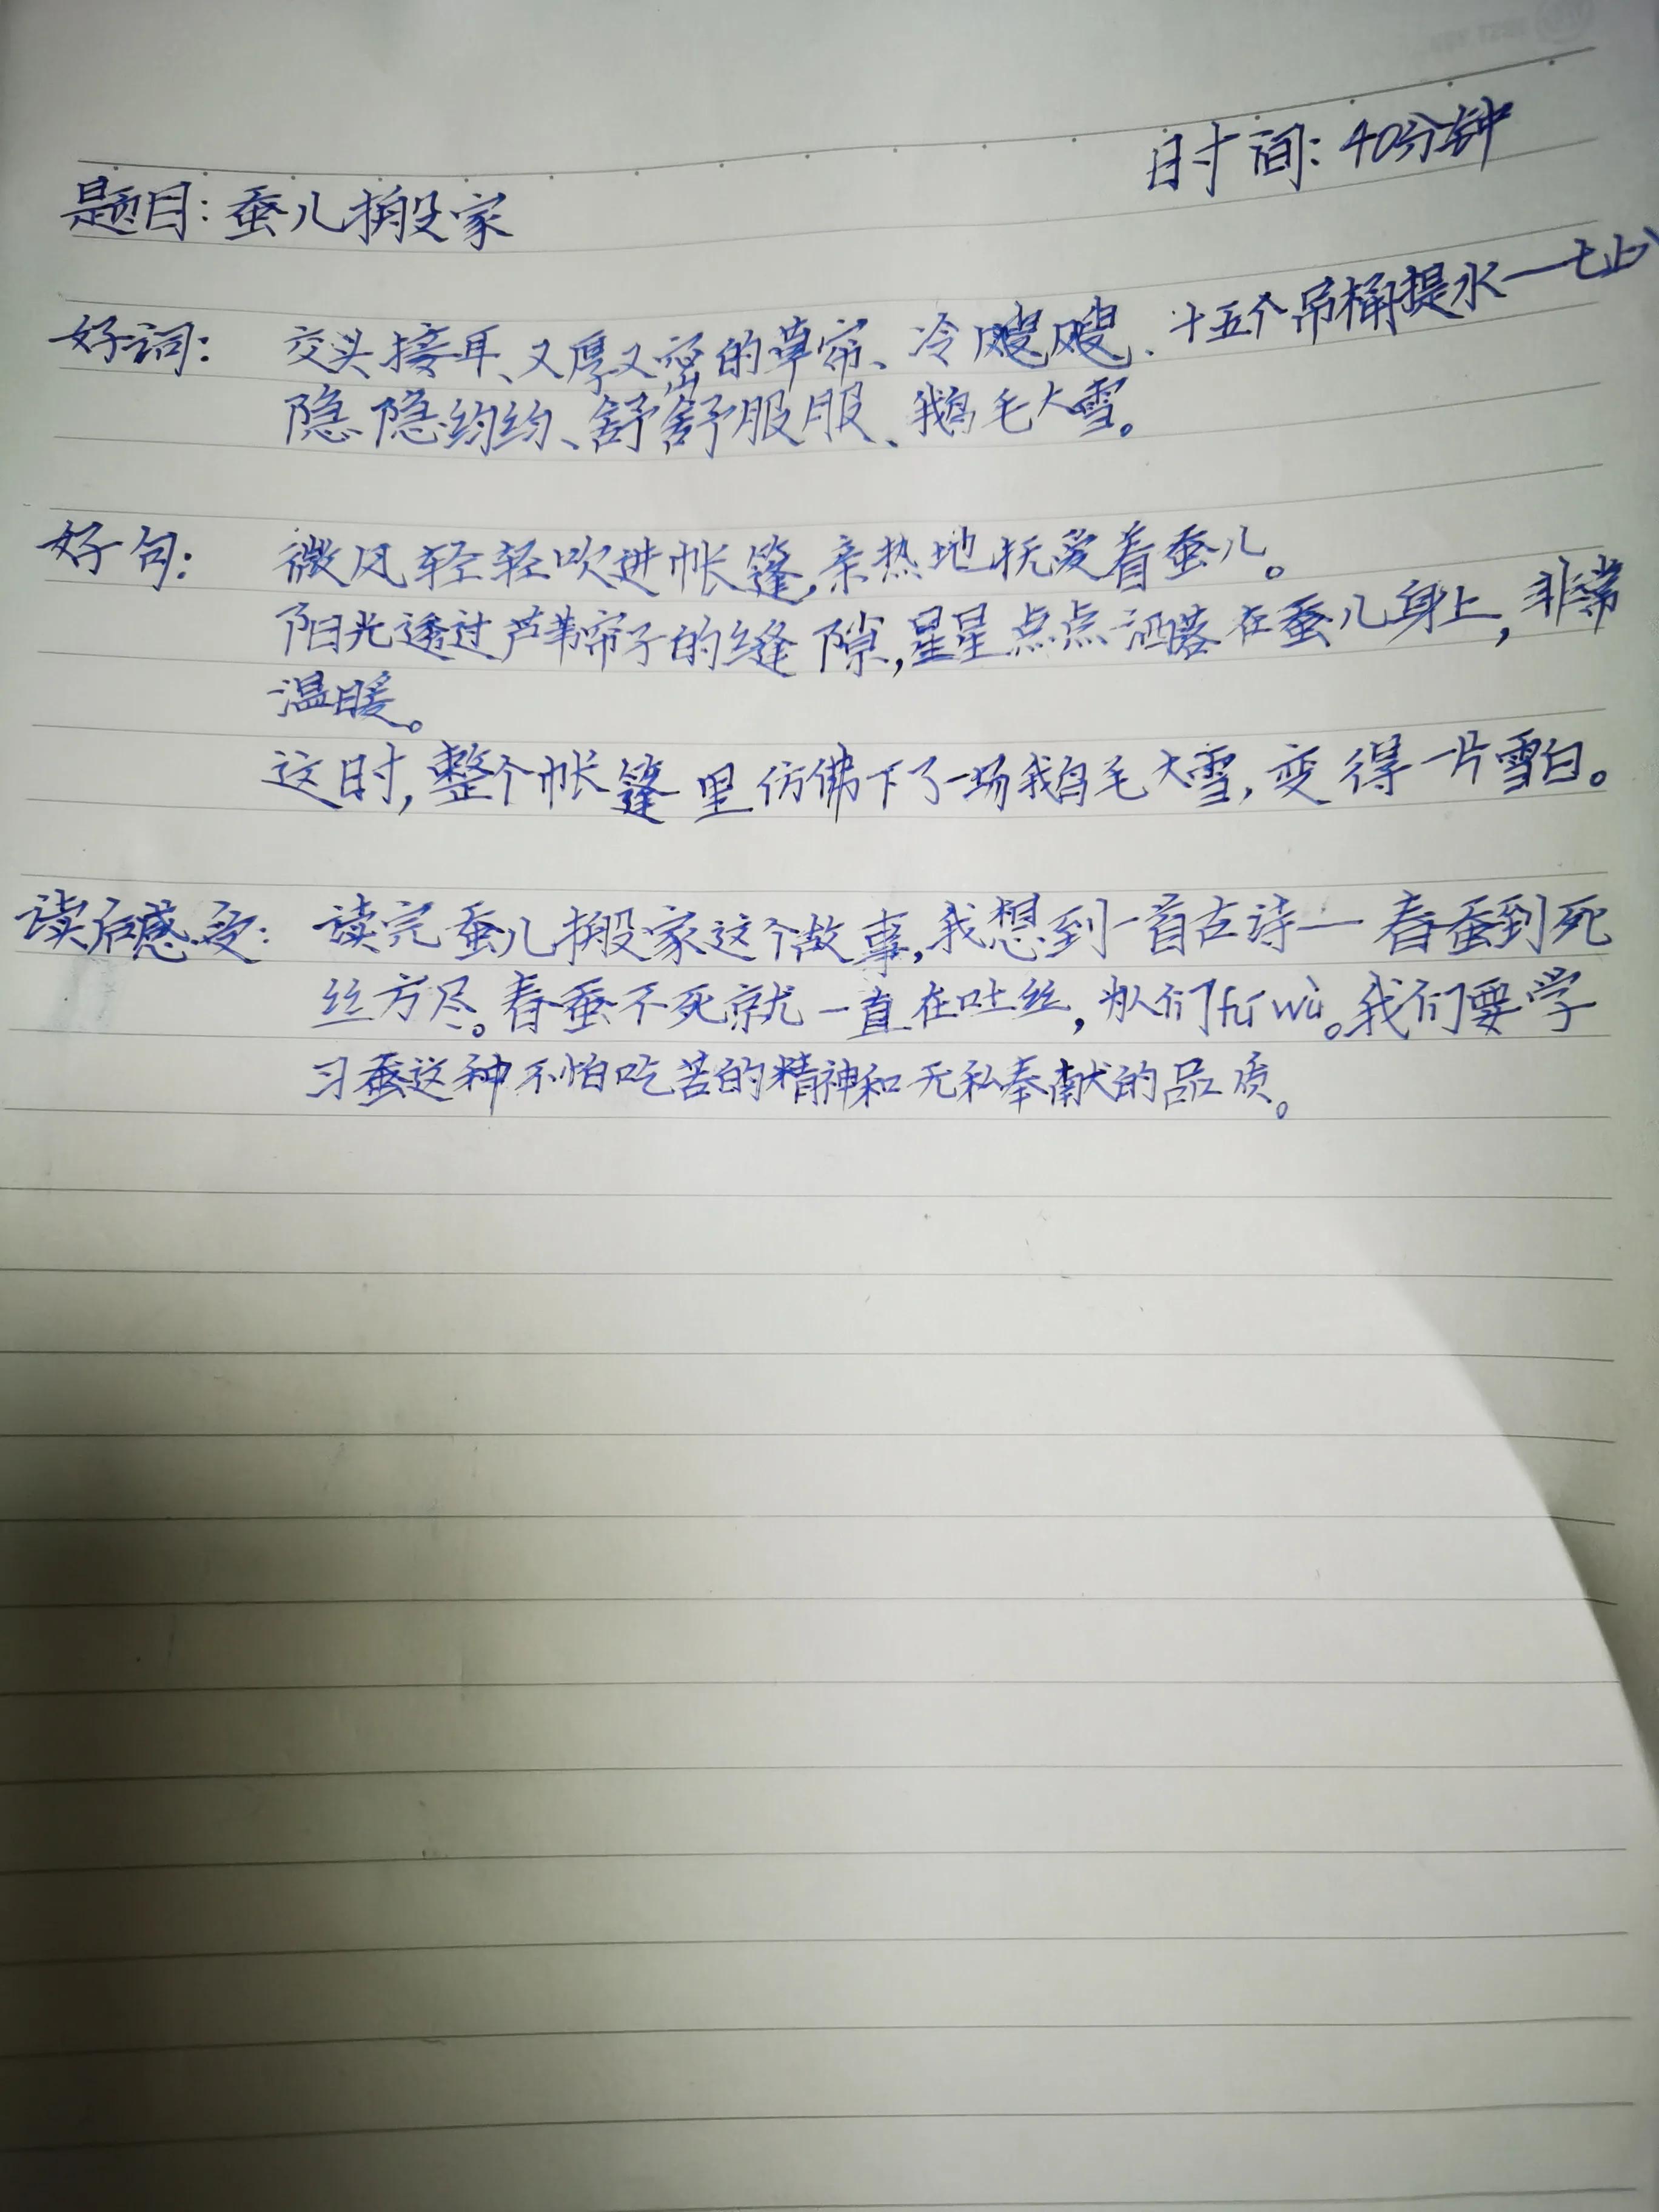 时间：40分钟
题目：蚕儿搬家
好词： 交头接耳、又厚又密的草帘、冷飕飕、十五个吊桶提水——七上八
隐隐约约、舒舒服服、鹅毛大雪。
好句： 微风轻轻吹进帐篷，亲热地抚爱着蚕儿。
阳光透过芦苇帘子的缝隙，星星点点洒落在蚕儿身上，非常
温暖。
这时，整个帐篷里仿佛下了一场鹅毛大雪，变得一片雪白。
读后感受： 读完蚕儿搬家这个故事，我想到一首古诗一春蚕到死
丝方尽。春蚕不死就一直在吐丝，为人们fú wù。我们要学
习蚕这种不怕吃苦的精神和无私奉献的品质。